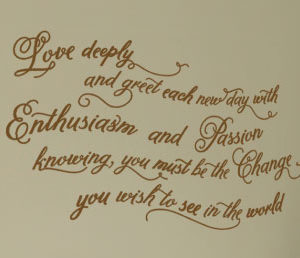 Love deeply
and greet each new day with
Enthusiasm and Passion
knowing, you must be the Change
you wish to see in the world